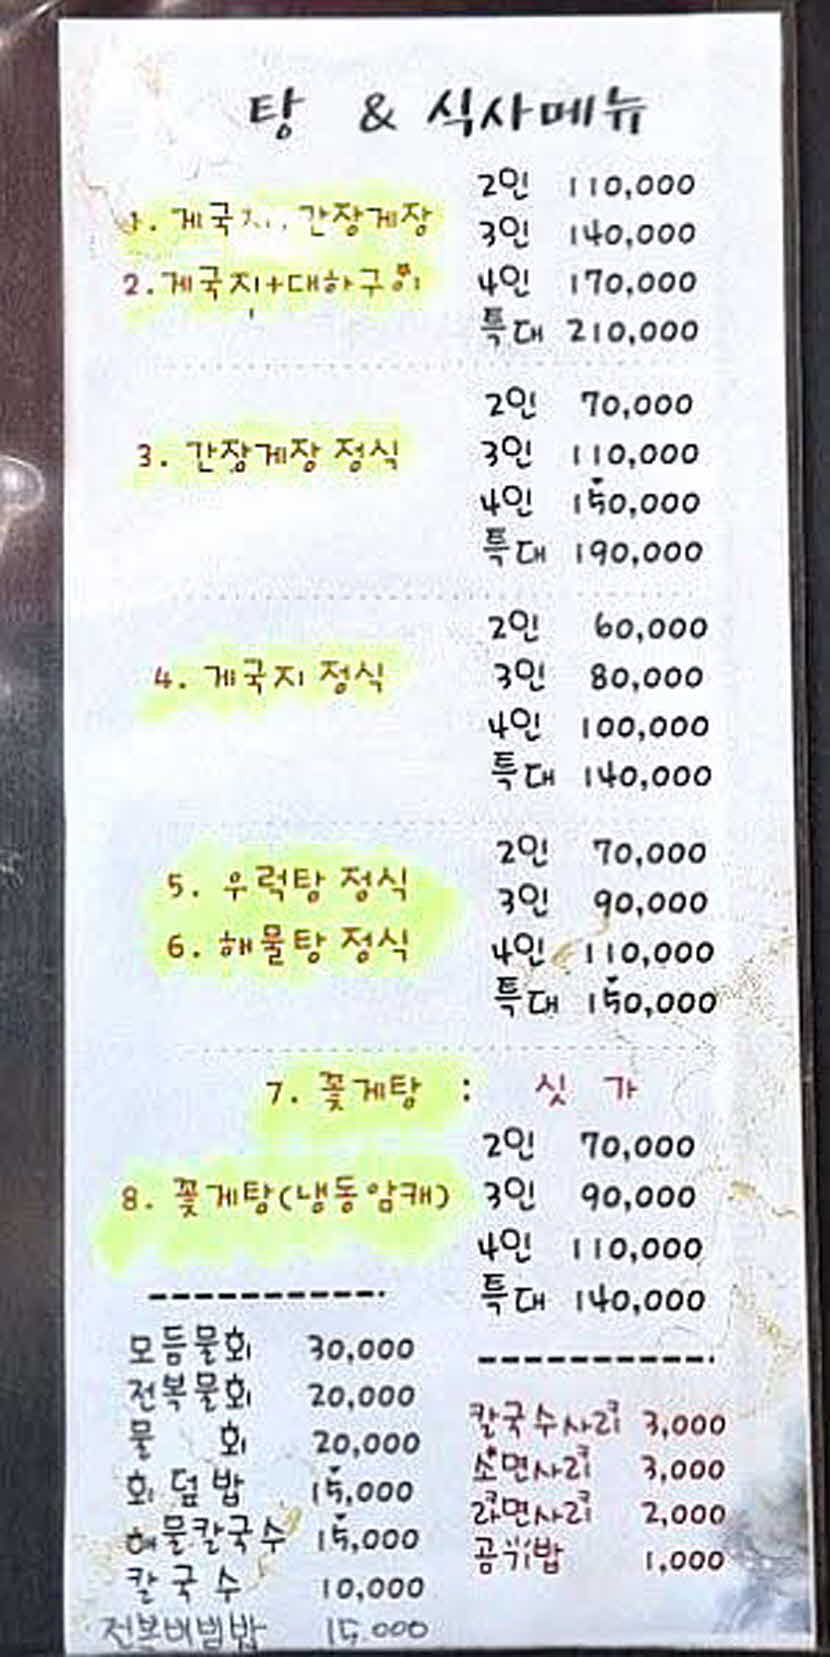 탕 & 식사메뉴
1. 게국지, 간장게장
2. 게국지+대하구이
2인 110,000
3인 140,000
4인 170,000
특대 210,000
3. 간장게장 정식
2인 70,000
3인 110,000
4인 150,000
특대 190,000
4. 게국지 정식
2인 60,000
3인 80,000
4인 100,000
특대 140,000
5. 우럭탕 정식
6. 해물탕 정식
2인 70,000
3인 90,000
4인 110,000
특대 150,000
7. 꽃게탕 : 싯 가
8. 꽃게탕(냉동암캐)
2인 70,000
3인 90,000
4인 110,000
특대 140,000
모듬물회 30,000
전복물회 20,000
물 회 20,000
회덮밥 15,000
해물칼국수 15,000
칼국수 10,000
전복비빔밥 15.000
칼국수사리 3,000
소면사리 3,000
라면사리 2,000
공기밥 1,000